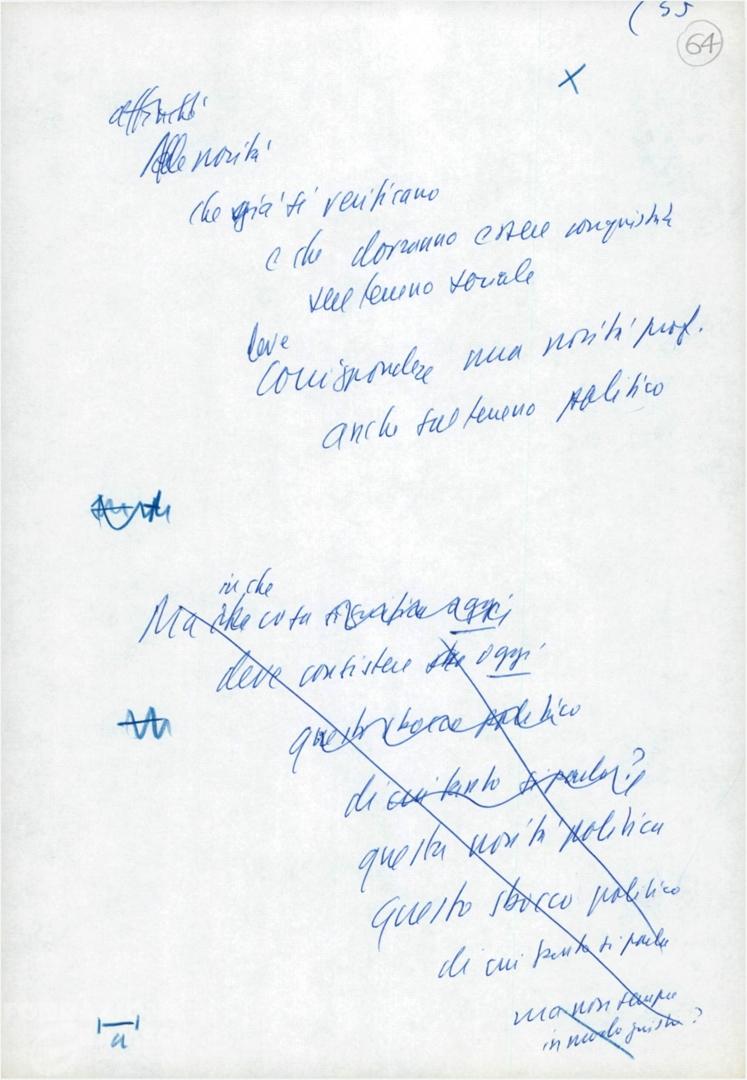 (55
64
X
Alle novità
che già si verificano
e che dovranno essere conquistate
sul terreno sociale
deve
corrispondere una novità prof.
anche sul terreno politico
in che
Ma che cosa significa oggi
deve consistere oggi
questo sbocco politico
di cui tanto si parla?
questa novità politica
questo sbocco politico
di cui tanto si parla
ma non sempre
in modo giusto?